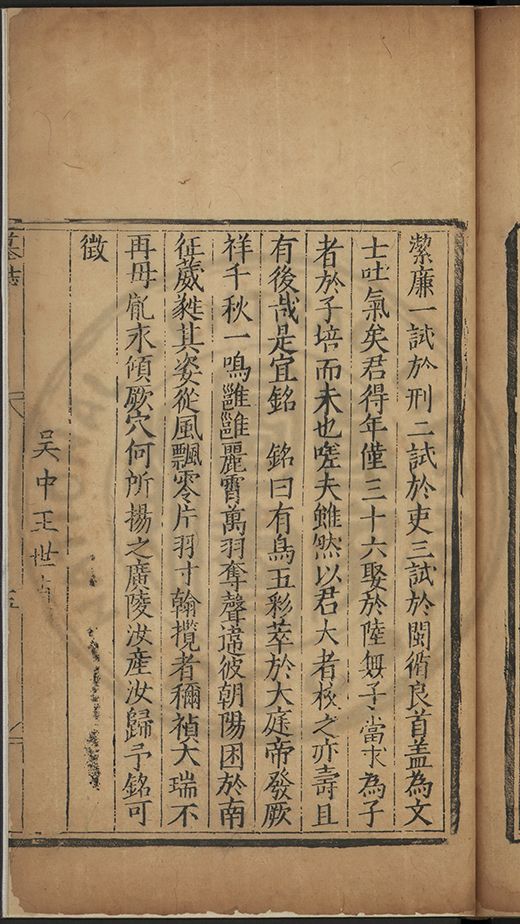 潔廉一試於刑二試於吏三試於閩循良首蓋為文
士吐氣矣君得年僅三十六娶於陸無子當求為子
者於子培而未也嗟夫雖然以君大者核之亦壽且
有後哉是宜銘　銘曰有鳥五彩萃於大庭帝發厥
祥千秋一鳴雝雝麗霄萬羽奪聲違彼朝陽困於南
征葳蕤其姿從風飄零片羽寸翰攬者稱禎大瑞不
再毋胤永傾厥穴何所揚之廣陵汝產汝歸予銘可
徵
吳中王世